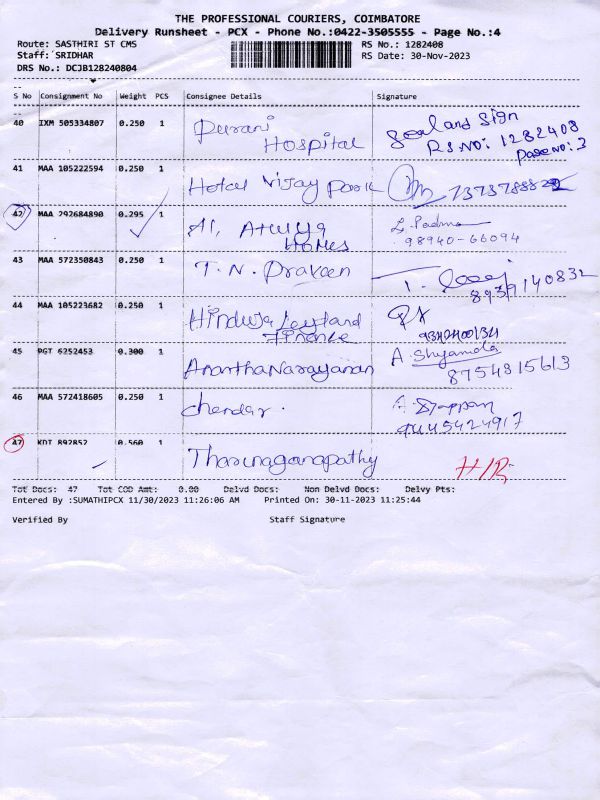 THE PROFESSIONAL COURIERS, COIMBATORE
Delivery Runsheet - PCX - Phone No.:0422-3505555 - Page No.:4
Route: SASTHIRI ST CMS RS No.: 1282408
Staff: SRIDHAR RS Date: 30-Nov-2023
DRS No.: DCJB128240804
S No Consignment No Weight PCS Consignee Details Signature
40 IXM 505334807 0.250 1 Purani Hospital Seal and Sign RS NO: 1282408 Page no: 3
41 MAA 105222594 0.250 1 Hotal Vijay Park
42 MAA 292684890 0.295 1 A1, Atulya Homes L. Padma 98940-66094
43 MAA 572350843 0.250 1 T. N. Praveen 8939140832
44 MAA 105223682 0.250 1 Hinduja Leyland Finance
45 PGT 6252453 0.300 1 Anantha Narayanan A. Shyamola 8754815613
46 MAA 572418605 0.250 1 Chendar. 9445424917
47 KDT 892852 0.560 1 Tharunaganapathy
Tot Docs: 47 Tot COD Amt: 0.00 Delvd Docs: Non Delvd Docs: Delvy Pts:
Entered By :SUMATHIPCX 11/30/2023 11:26:06 AM Printed On: 30-11-2023 11:25:44
Verified By Staff Signature